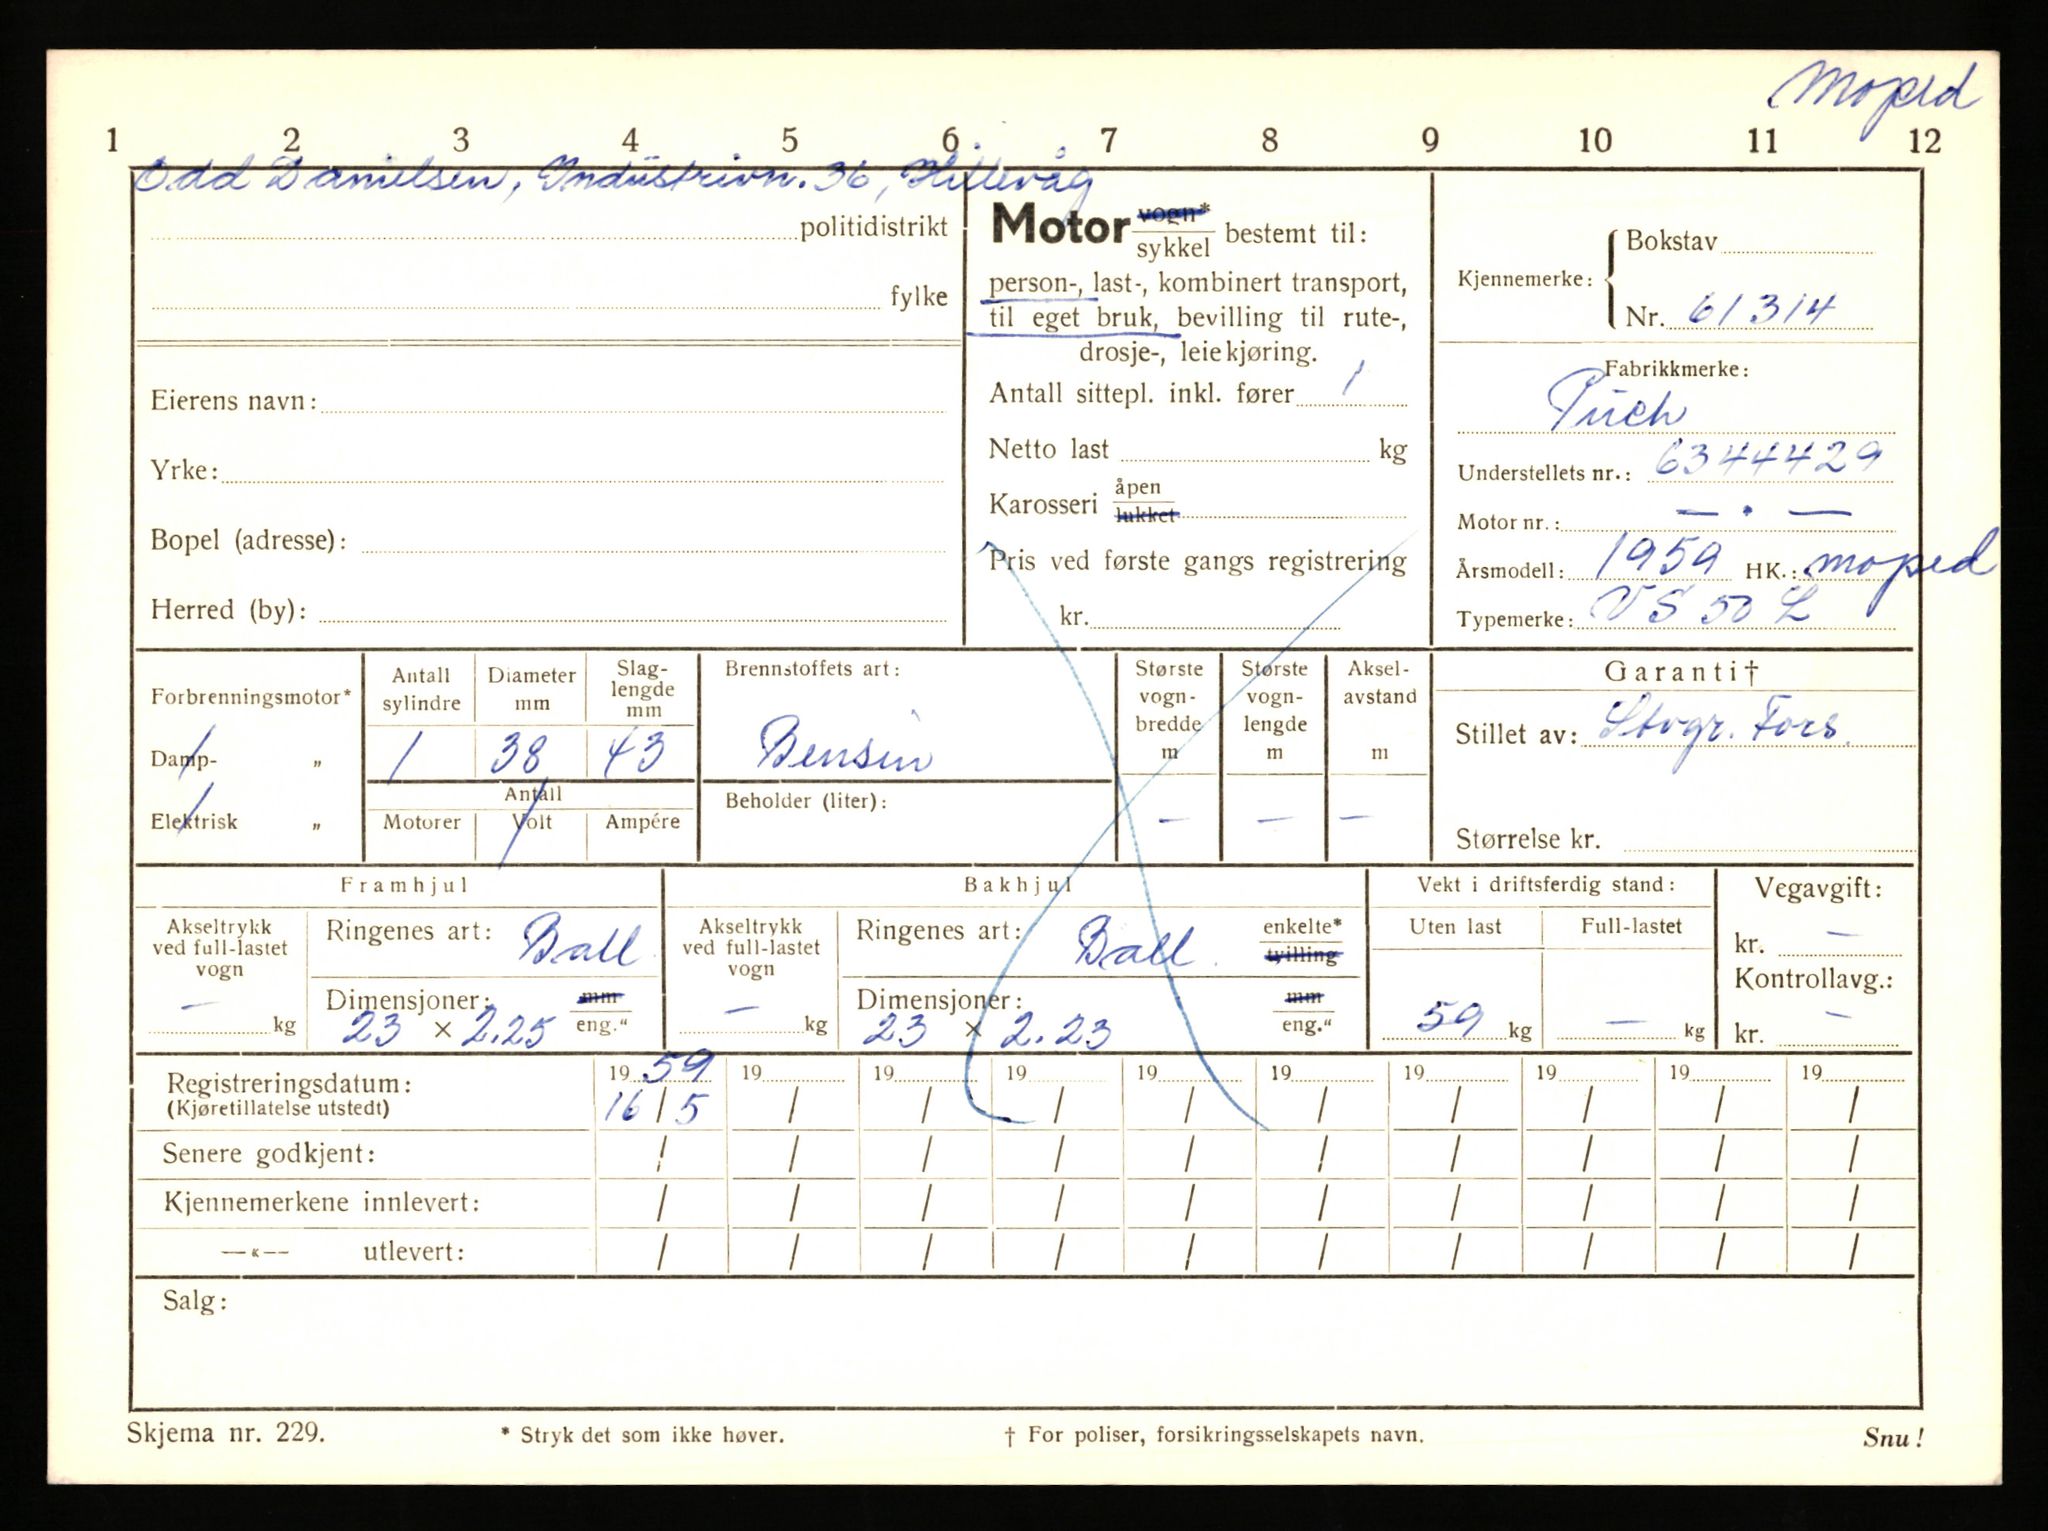 Moped
1 2 3 4 5 6 7 8 9 10 11 12
Odd Danielsen, Industrivn. 36, Hillevåg
politidistrikt
fylke
Eierens navn:
Yrke:
Bopel (adresse):
Herred (by):
Motor vogn* / sykkel bestemt til:
person-, last-, kombinert transport,
til eget bruk, bevilling til rute-,
drosje-, leiekjøring.
Antall sittepl. inkl. fører 1
Netto last kg
Karosseri åpen / lukket
Pris ved første gangs registrering
kr.
Kjennemerke: Bokstav
Nr. 61314
Fabrikkmerke:
Puch
Understellets nr.: 6344429
Motor nr.: — . —
Årsmodell: 1959 HK.: moped
Typemerke: VS 50 L
Forbrenningsmotor*
Damp- „
Elektrisk „
Antall sylindre
1
Diameter mm
38
Slaglengde mm
43
Antall
Motorer Volt Ampére
Brennstoffets art:
Bensin
Beholder (liter):
Største vogn-bredde m
—
Største vogn-lengde m
—
Aksel-avstand m
—
Garanti †
Stillet av: Stvgr. Fors.
Størrelse kr.
Framhjul
Akseltrykk ved full-lastet vogn
— kg
Ringenes art: Ball.
Dimensjoner: mm / eng."
23 × 2.25
Bakhjul
Akseltrykk ved full-lastet vogn
— kg
Ringenes art: Ball. enkelte* / tvilling
Dimensjoner: mm / eng."
23 × 2.23
Vekt i driftsferdig stand:
Uten last Full-lastet
59 kg — kg
Vegavgift:
kr. —
Kontrollavg.:
kr. —
Registreringsdatum: 19 59 19 19 19 19 19 19 19 19 19
(Kjøretillatelse utstedt) 16 / 5 / / / / / / / / /
Senere godkjent: / / / / / / / / / /
Kjennemerkene innlevert: / / / / / / / / / /
—«— utlevert: / / / / / / / / / /
Salg:
Skjema nr. 229. * Stryk det som ikke høver. † For poliser, forsikringsselskapets navn. Snu!